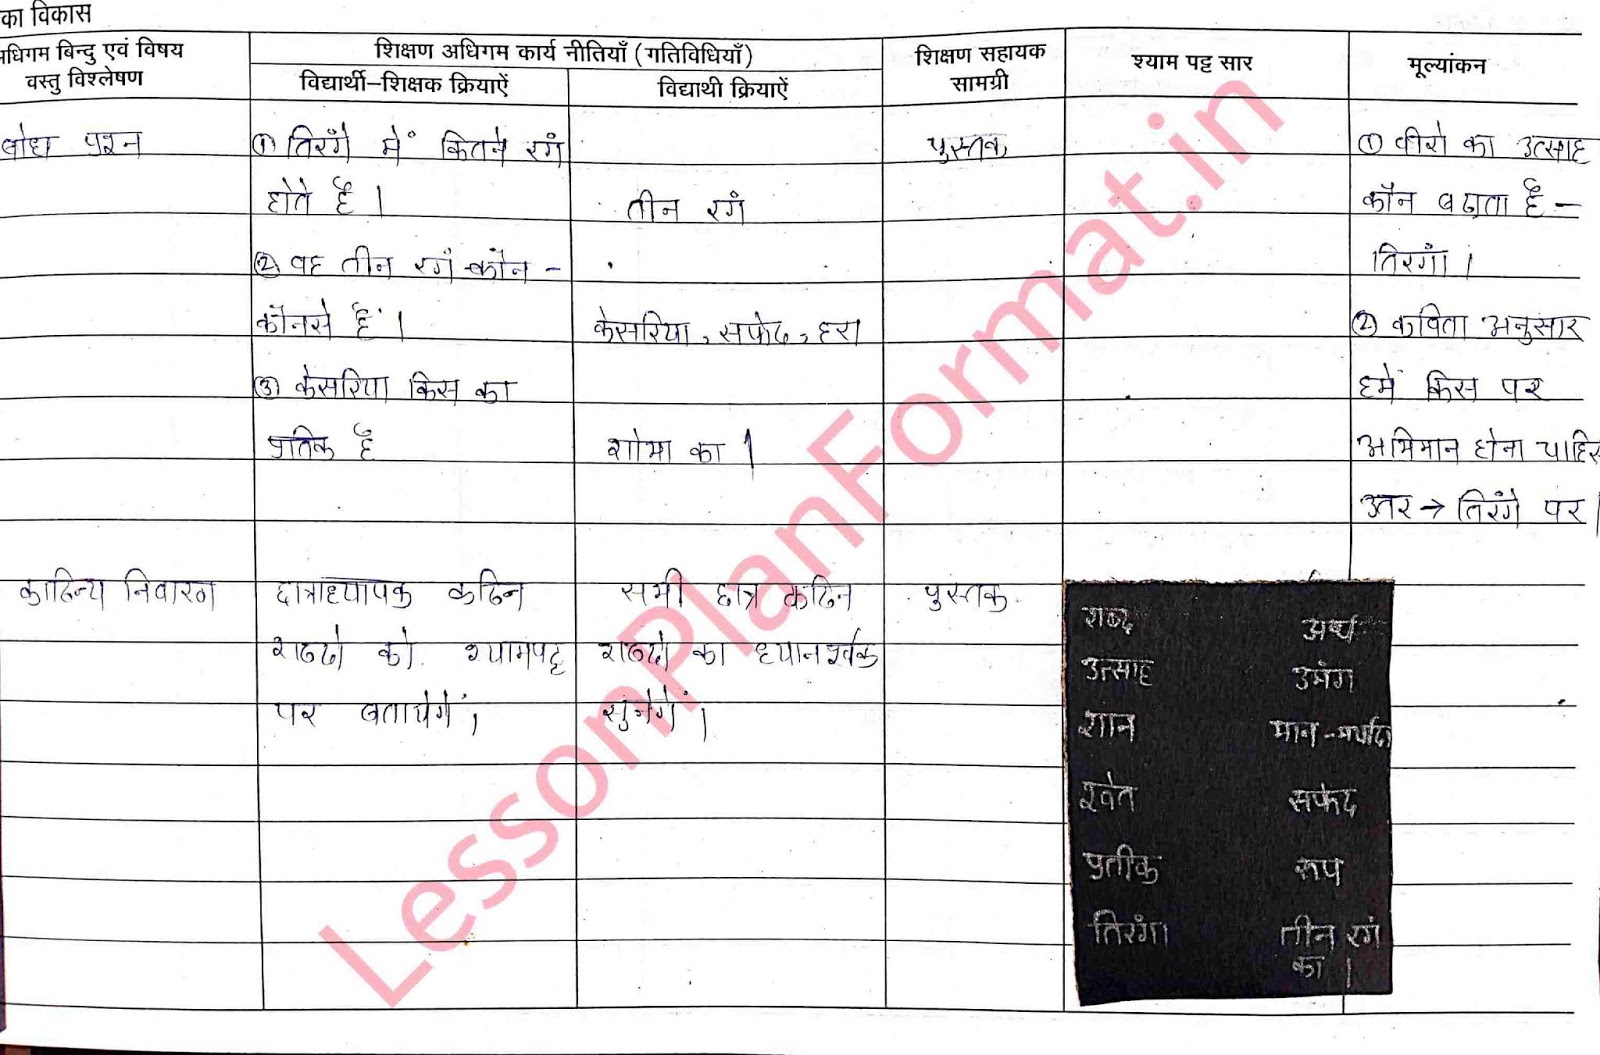 का विकास
अधिगम बिन्दु एवं विषय
वस्तु विश्लेषण
शिक्षण अधिगम कार्य नीतियाँ (गतिविधियाँ)
विद्यार्थी–शिक्षक क्रियाऐं
विद्याथी क्रियाऐं
शिक्षण सहायक
सामग्री
श्याम पट्ट सार
मूल्यांकन
बोध प्रश्न
① तिरँगे में कितने रगं
होते है ।
तीन रगं
② वह तीन रगं कौन -
कौनसे हैं ।
केसरिया, सफेद, हरा
③ केसरिया किस का
प्रतिक है
शोभा का ।
पुस्तक
① वीरो का उत्साह
कौन बढाता है –
तिरगाँ ।
② कविता अनुसार
हमें किस पर
अभिमान होना चाहिए
उतर → तिरँगे पर ।
काठिन्य निवारण
छात्राध्यापक कठिन
शब्दो को श्यामपट्ट
पर बतायेगें ।
सभी छात्र कठिन
शब्दो का ध्यानपूर्वक
सुनेगें ।
पुस्तक
शब्द अर्थ
उत्साह उमंग
शान मान-मर्यादा
श्वेत सफेद
प्रतीक रूप
तिरंगा तीन रगं
का ।
LessonPlanFormat.in